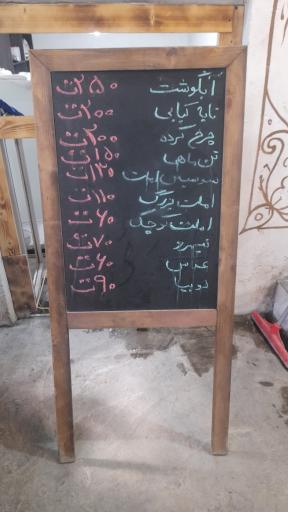 آبگوشت ۲۵۰ت
تابه کبابی ۲۰۰ت
چرخ کرده ۲۰۰ت
تن ماهی ۱۵۰ت
سوسیس املت ۱۳۰ت
املت بزرگ ۱۱۰ت
املت کوچک ۶۰ت
نیمرو ۷۰ت
عدسی ۶۰ت
لوبیا ۹۰ت